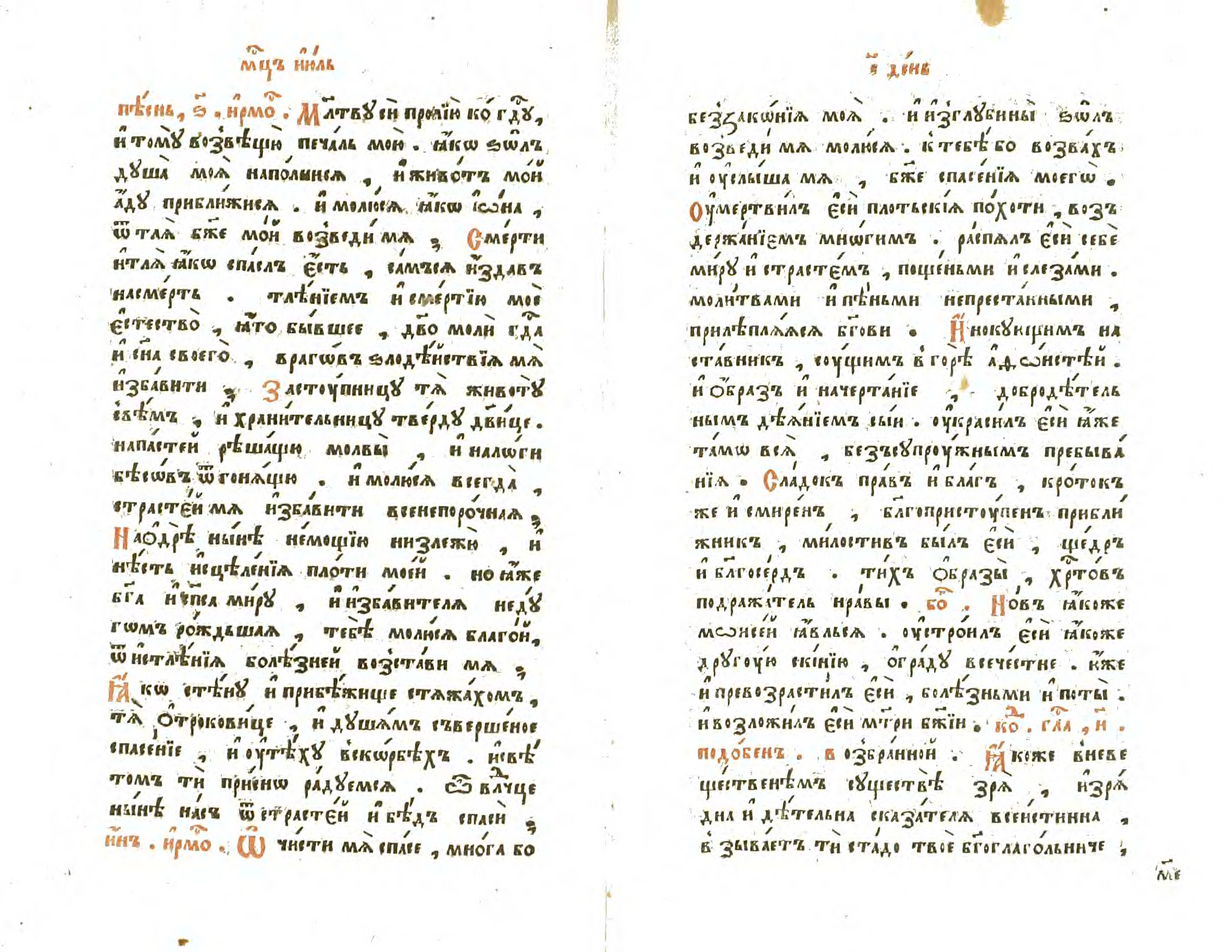 мⷭ҇цъ и҆ю́ль
пѣ́снь, ѕ҃ . и҆рмо́с . Мл҃твꙋ сѝ пролїю̀ ко гдⷭ҇ꙋ,
и҆ томꙋ̀ возвѣщꙋ̀ печа́ль мою̀ . ꙗ҆́кѡ ѕѡ́лъ
дꙋша̀ моѧ̀ напо́лнисѧ , и҆ живо́тъ мо́й
а҆́дꙋ прибли́жисѧ . и҆ молю́сѧ ꙗ҆́кѡ і҆ѡ́на ,
ѿ тлѧ̀ бж҃е мо́й возведи́ мѧ , Сме́рти
и҆ тлѧ̀ ꙗ҆́кѡ спа́слъ є҆́сть , са́мъсѧ и҆зда́въ
на сме́рть . тлѣ́нїемъ и҆ сме́ртїю моѐ
є҆стество̀ , ꙗ҆́то бы́вшее , дв҃о молѝ гдⷭ҇а
и҆ сн҃а своего̀ , враго́въ ѕлодѣ́йствїѧ мѧ̀
и҆зба́вити , Засто́упницꙋ тѧ̀ животꙋ̀
свѣ́мъ , и҆ храни́тельницꙋ тве́рдꙋ дв҃ице .
напа́стей рѣша́щꙋ молвы̀ , и҆ нало́ги
бѣсо́въ ѿгонѧ́щꙋ . и҆ молю́сѧ всегда̀ ,
страсте́й мѧ и҆зба́вити всенепоро́чнаѧ ,
На ѻ҆дрѣ̀ ны́нѣ не́мощїю низлежꙋ̀ , и҆
нѣ́сть и҆сцѣле́нїѧ пло́ти мое́й . но ꙗ҆́же
бг҃а и҆ спⷭ҇а ми́рꙋ , и҆ и҆зба́вителѧ недꙋ́
гѡмъ ро́ждьшаѧ , тебѣ̀ молю́сѧ благо́й,
ѿ и҆стлѣ́нїѧ болѣ́зней возста́ви мѧ ,
Ꙗ҆́кѡ стѣ́нꙋ и҆ прибѣ́жище стѧжа́хомъ,
тѧ̀ ѻ҆трокови́це , и҆ дꙋша́мъ съверше́ное
спасе́нїе , и҆ оу҆тѣ́хꙋ в̾ско́рбѣхъ . и҆ свѣ́
томъ ти̑ при́снѡ ра́дꙋемсѧ . ѽ влⷣчце
ны́нѣ на́съ ѿ страсте́й и҆ бѣ́дъ спасѝ ,
и҆́нъ . и҆рмо́с . Ѿ чи́сти мѧ̀ сп҃се , мно́га бо
і҃ де́нь
беззако́нїѧ моѧ̀ . и҆ и҆з̾глꙋбины̀ ѕѡ́лъ
возведи́ мѧ молю́сѧ . к тебѣ́ бо возва́хъ
и҆ оу҆слы́ша мѧ , бж҃е спасе́нїѧ моегѡ̀ .
Оу҆мертви́лъ є҆сѝ пло́тьскїѧ по́хоти , воз̾
держа́нїемъ мно́гимъ . распѧ́лъ є҆сѝ себѐ
ми́рꙋ и҆ страсте́мъ , поще́ньми и҆ слеза́ми .
моли́твами и҆ пѣ́ньми непреста́нными ,
прилѣплѧ́ѧсѧ бг҃ови . И҆нокꙋ́щимъ на
ста́вникъ , соу́щимъ в̾ горѣ̀ а҆дѡ́нстѣй .
и҆ ѻ҆́бразъ и҆ начерта́нїе , добродѣ́тель
нымъ дѣѧ́нїемъ сы́и . оу҆краси́лъ є҆сѝ ꙗ҆́же
та́мѡ всѧ̀ , без̾сꙋпроу́жнымъ пребыва́
нїѧ . Сла́докъ пра́въ и҆ бла́гъ , кро́токъ
же и҆ смире́нъ , бл҃гопристо́упенъ прибли́
жникъ , ми́лостивъ бы́лъ є҆сѝ , ще́дръ
и҆ бл҃госе́рдъ . ти́хъ ѻ҆́бразы , хрⷭ҇то́въ
подража́тель нра́вы . бо́ . Но́въ ꙗ҆́коже
мѡѷсе́й ꙗ҆ви́лъсѧ . оу҆стро́илъ є҆сѝ ꙗ҆́коже
дрꙋго́ую ски́нїю , ѻ҆гра́дꙋ всече́стне . ю҆́же
и҆ превозрасти́лъ є҆сѝ , болѣ́зньми и҆ по́ты .
и҆ возложи́лъ є҆сѝ мт҃ри бж҃їи . кⷣо . гла́ , и҃ .
подо́бенъ . в озбра́нной . Ꙗ҆́коже в̾неве
ще́ственѣмъ сꙋществѣ̀ зрѧ̀ , и҆зрѧ́
дна и҆ дѣ́тельна сказа́телѧ всеи́стинна ,
в̾зыва́етъ ти̑ ста́до твоѐ бг҃оглаго́льниче ,